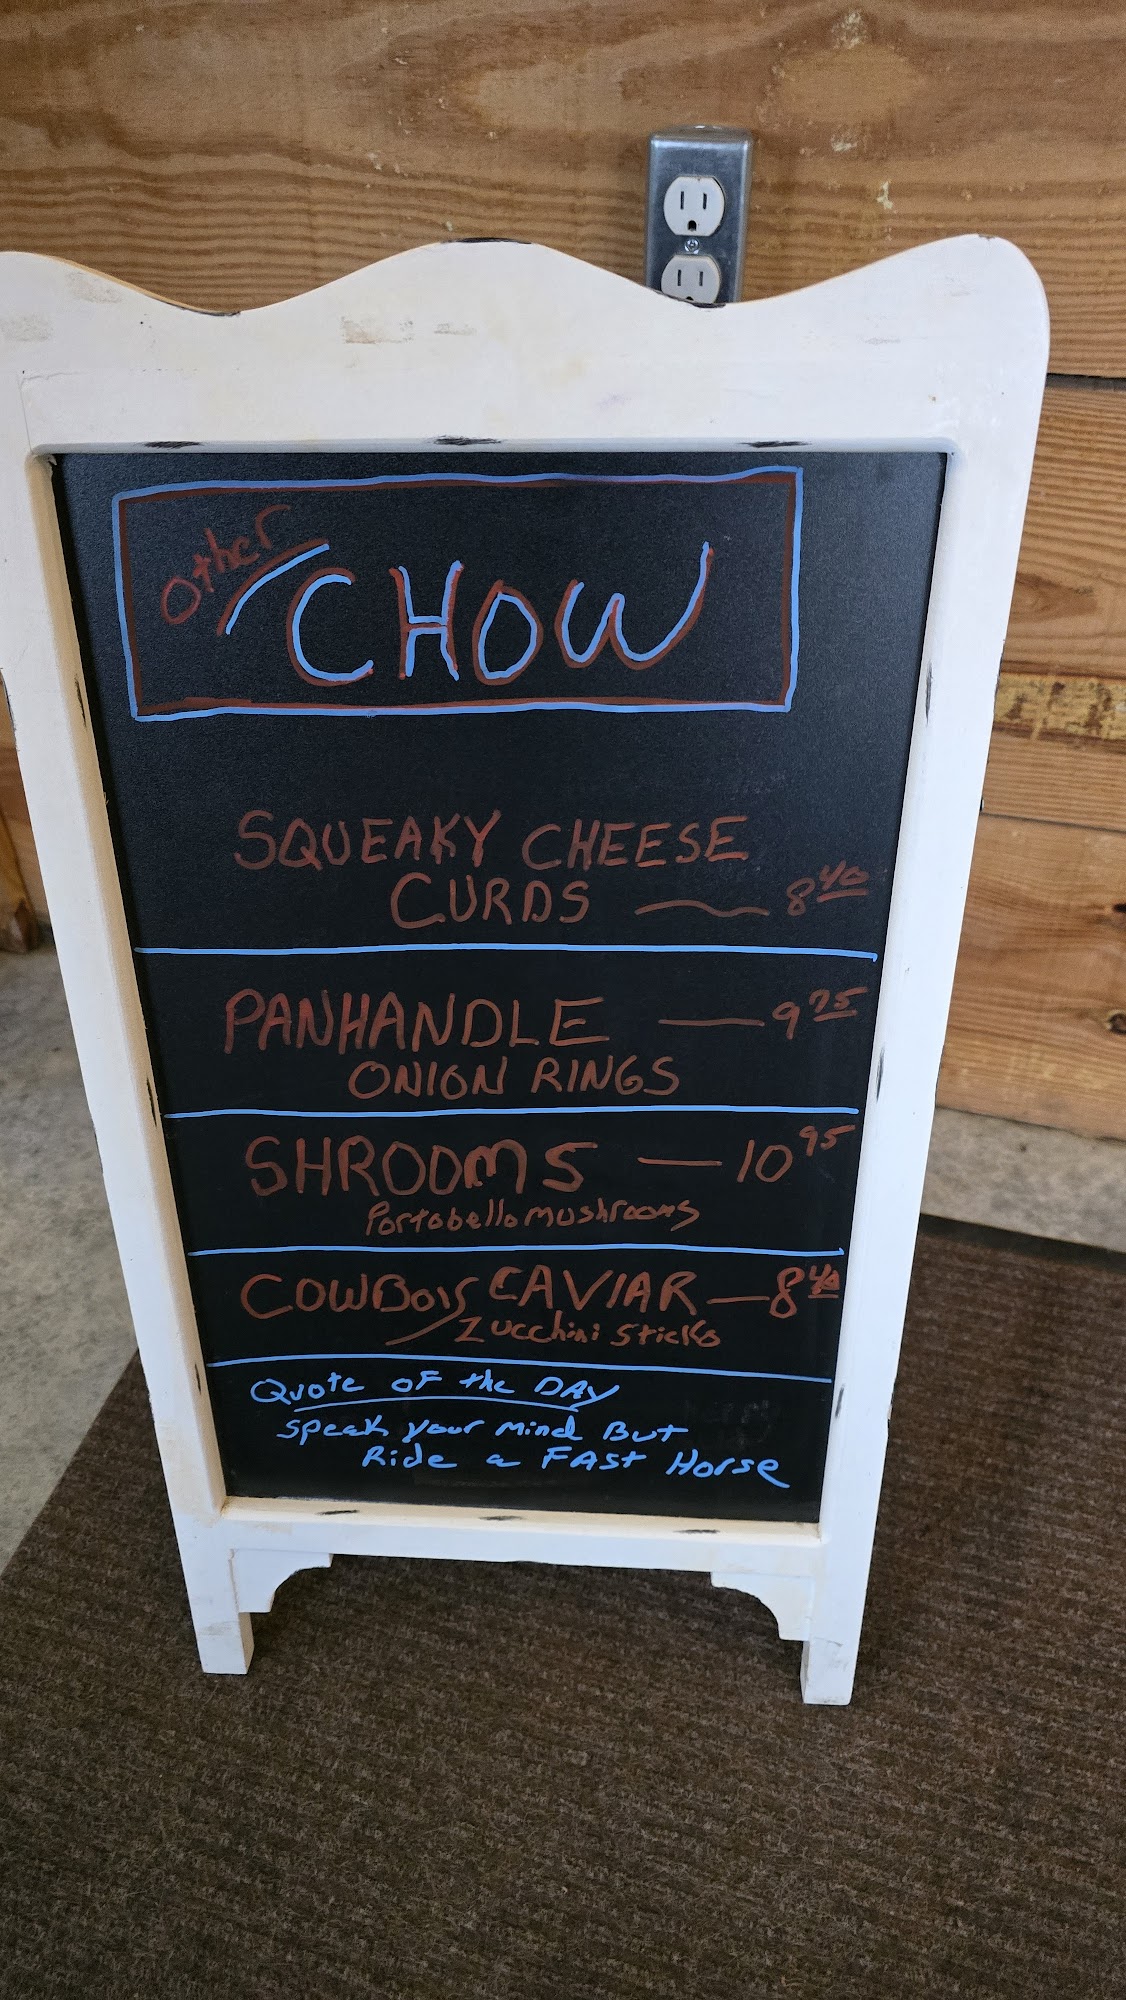 Other
CHOW
SQUEAKY CHEESE
CURDS — 8 40
PANHANDLE — 9 75
ONION RINGS
SHROOMS — 10 95
Portobello mushrooms
COWBOYS CAVIAR — 8 40
Zucchini Sticks
Quote OF the DAy
Speak your Mind But
Ride a FASt Horse